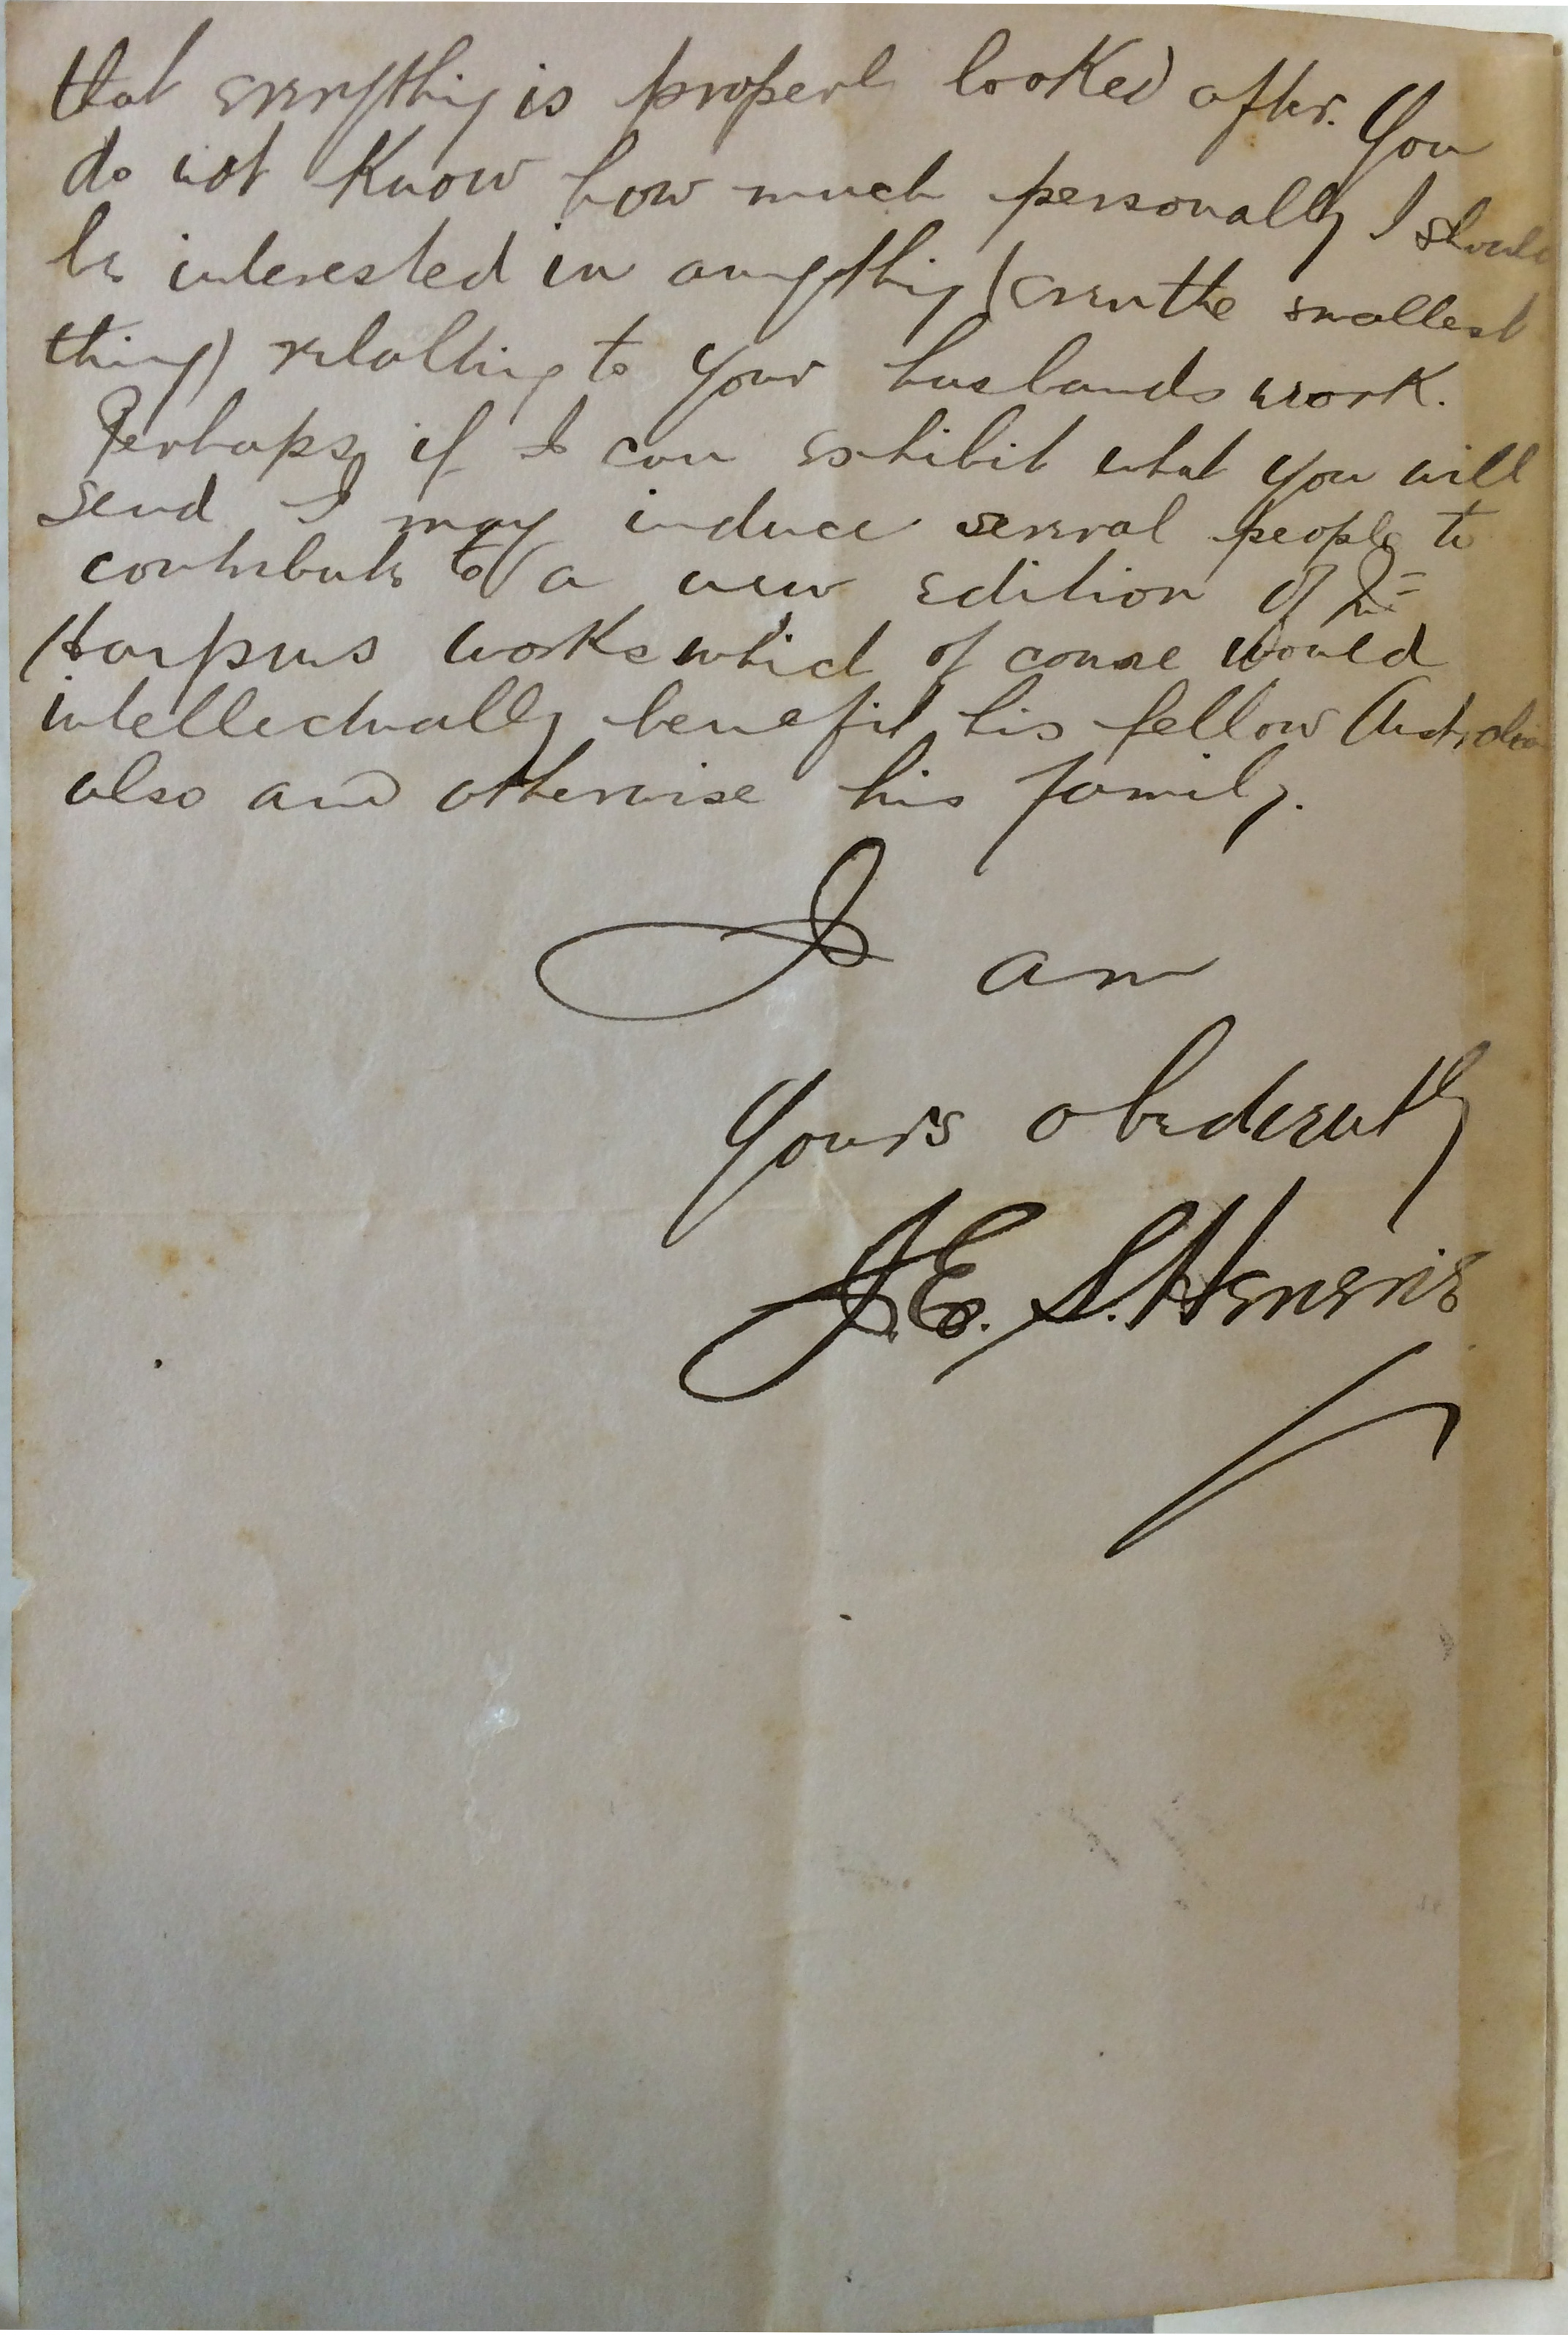 that everything is properly looked after. You
do not know how much personally I should
be interested in anything (even the smallest
thing) relating to your husbands work.
Perhaps if I can exhibit what you will
send I may induce several people to
contribute to a new edition of Mr
Harpurs works which of course would
intellectually benefit his fellow Australians
also and otherwise his family.
I am
Yours obediently
J. E. S. Henerie